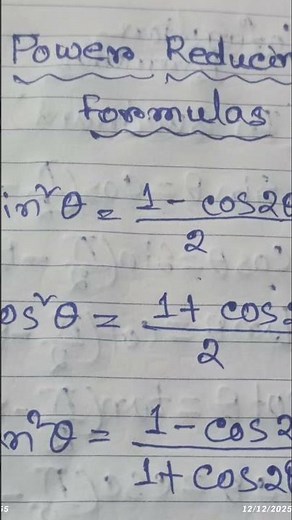 Power Reducin
formulas
in²θ = 1 - cos2θ / 2
os²θ = 1 + cos2 / 2
n²θ = 1 - cos2 / 1 + cos2θ
55 12/12/2025